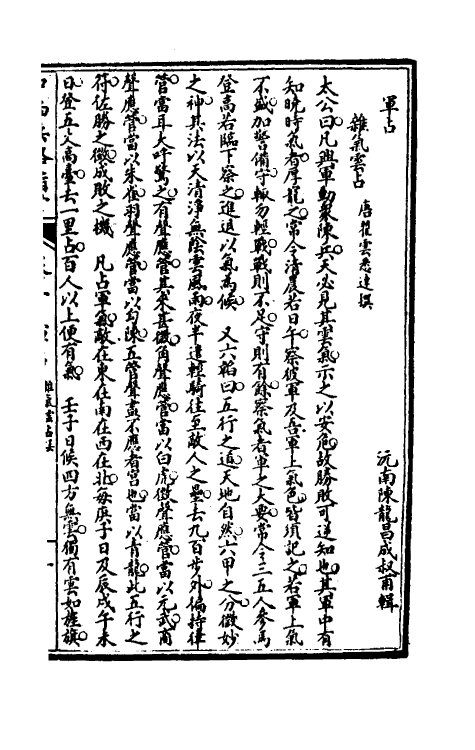 軍占
沅南陳龍昌成叔甫輯
雜氣雲占 唐瞿雲悉達撰
太公曰凡興軍動衆陳兵天必見其雲氣示之以安危故勝敗可逆知也其軍中有
知曉時氣者厚寵之常令清晨若日午察彼軍及吾軍上氣色皆須記之若軍上氣
不盛加警備守輒勿輕戰戰則不足守則有餘察氣者軍之大要常令三五人參馬
登高若臨下察之進退以氣為候 又六韜曰五行之道天地自然六甲之分微妙
之神其法以天清淨無陰雲風雨夜半遣輕騎往至敵人之壘去九百步外偏持律
管當耳大呼驚之有聲應管其來甚微角聲應管當以白虎徵聲應管當以元武商
聲應管當以朱雀羽聲應管當以勾陳五管聲盡不應者宮也當以青龍此五行之
符佐勝之徵成敗之機 凡占軍氣敵在東在南在西在北每庚子日及辰戌午未
日登五丈高臺去一里占百人以上便有氣 壬子日候四方無雲獨有雲如旌旗
雜氣雲占